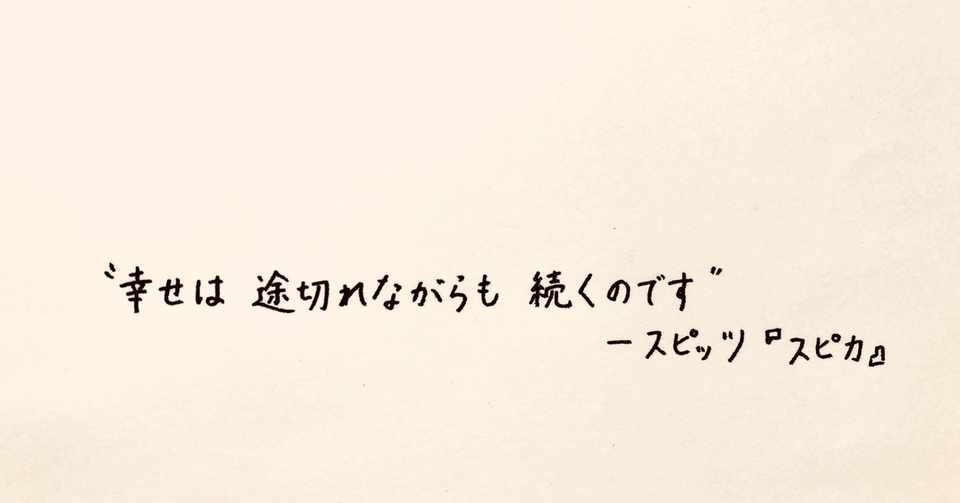 “幸せは 途切れながらも 続くのです”
ースピッツ『スピカ』